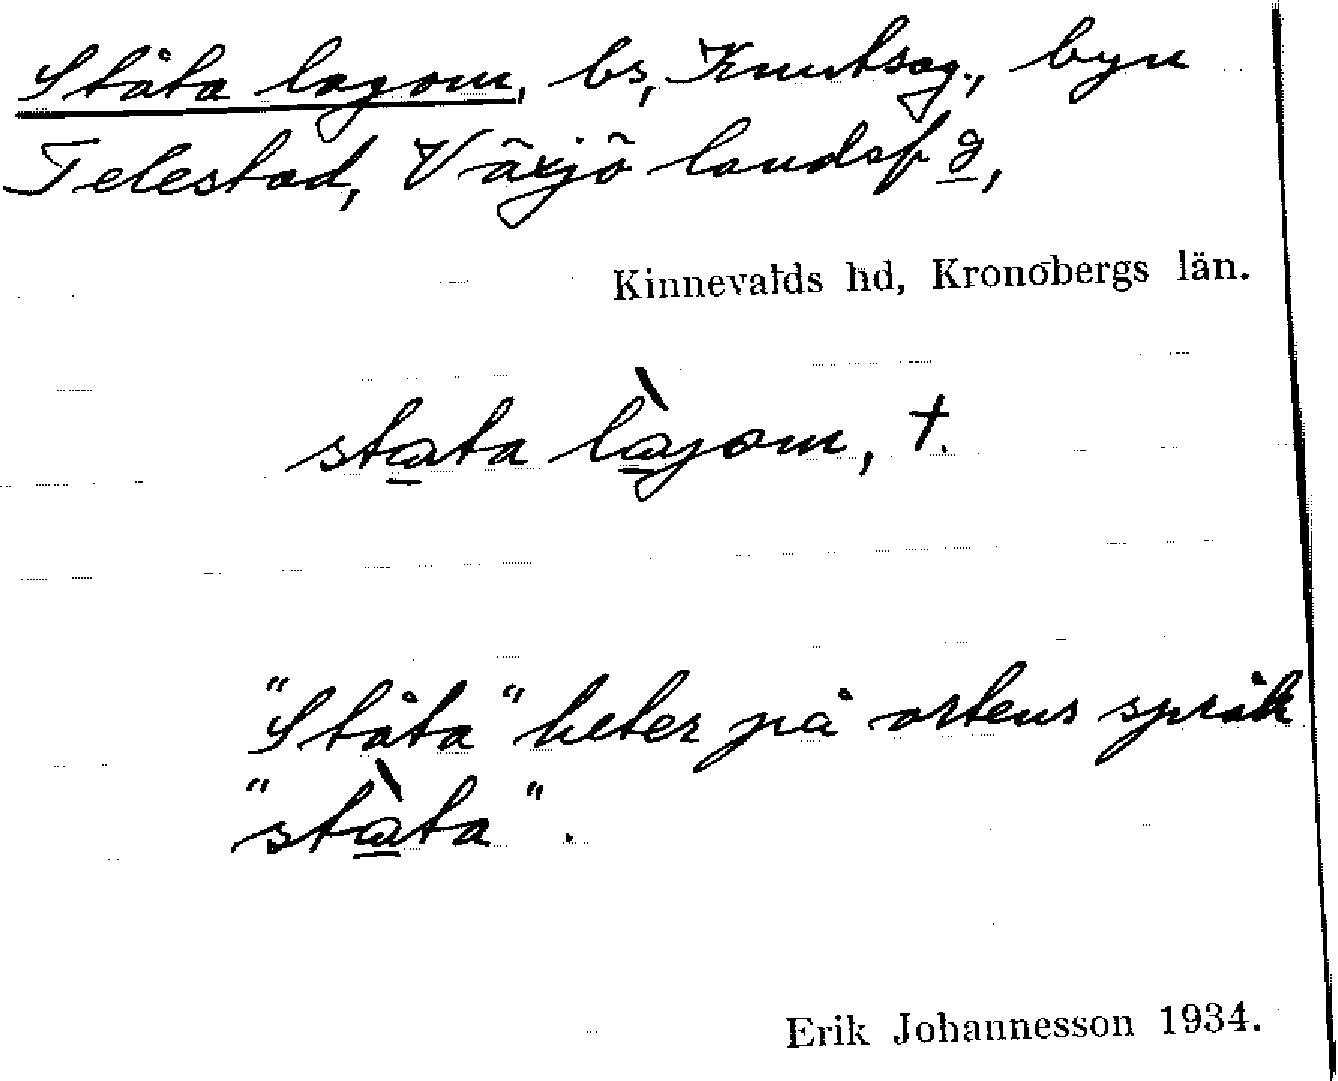 Ståta lagom, bs, Knutsag., byn
Telestad, Växjö landsf g,
Kinnevalds hd, Kronobergs län.
stata làgom, †.
"Ståta" heter på ortens språk
"stàta".
Erik Johannesson 1934.